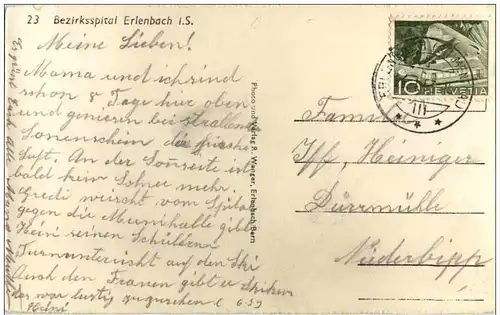 23 Bezirksspital Erlenbach i.S.
Meine Lieben!
Mama und ich sind
schon 8 Tage hier oben
und geniesen bei strallend
Sonenschein die frische
Luft. An der Sonseite ist
bald kein Schne mehr.
Gredi wüscht vom Spital
gegen die Meunihalle gibt
Heini seinen Schülern
Turnunterricht auf den Ski
Auch den Frauen gibt er Skikurs
war lustig zuzusehen
Heini
Es grüsst Euch alle Mama
Photo und Verlag W. Wanger, Erlenbach-Bern
10 HELVETIA
III
Familie
Iff, Heiniger
Dürrmülle
Niederbipp